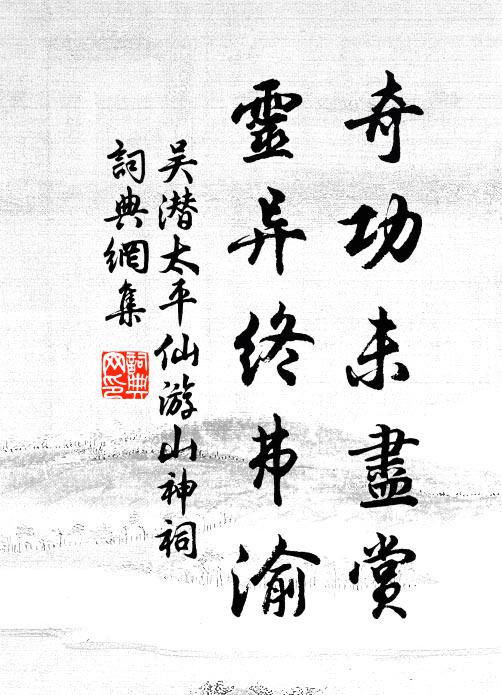 奇功未盡賞
靈异終弗渝
吴潜太平仙游山神祠
詞典網集
詞典網印